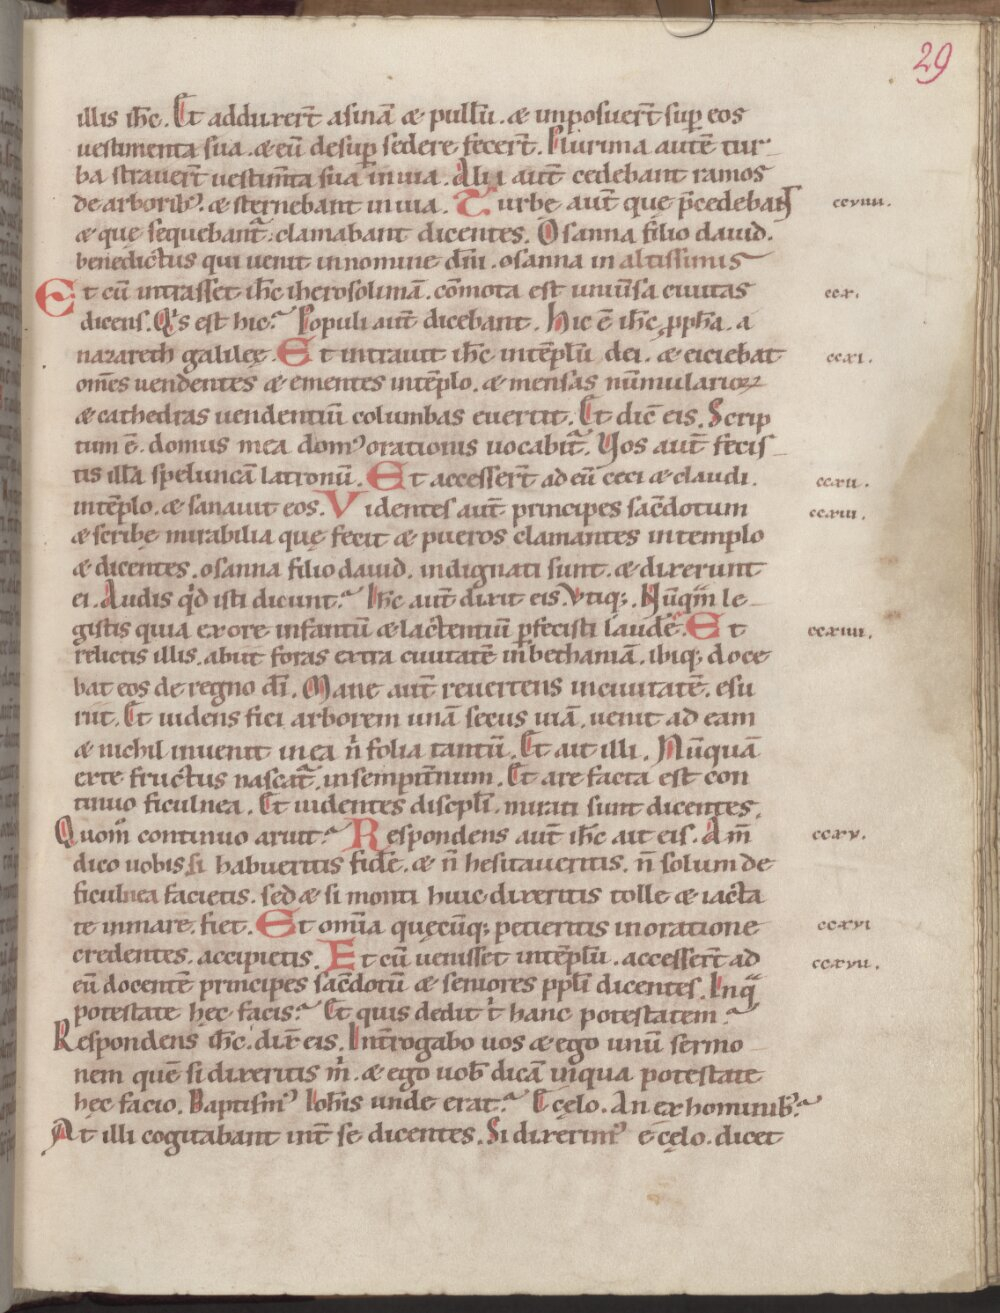 29
illis ih̅c. Et adduxer̅t asinā & pullū. & imposuer̅t sup̱ eos
uestimenta sua. & eū desup̱ sedere fecer̅t. Plurima autē tur-
ba strauer̅t uestim̅ta sua in uia. Alii aut̅ cedebant ramos
de arborib᾿. & sternebant in uia. Turbe aut̅ que p̅cedebant ccviiii.
& que sequebant᷑. clamabant dicentes. Osanna filio dauid.
benedictus qui uenit in nomine dn̅i. osanna in altissimis
Et cū intrass& ih̅c iherosolimā. cōmota est uniu̅sa ciuitas ccx.
dicens. Qis est hic? Populi aut̅ dicebant. Hic ē ih̅c ppha. a
nazareth galileę. Et intrauit ih̅c in tēplū dei. & eiciebat ccxi.
om̅es uendentes & ementes in tēplo. & mensas nūmularioꝝ
& cathedras uendentiū columbas euertit. Et dic̅ eis. Scrip
tum ē. domus mea dom᾿ orationis uocabit᷑. Uos aut̅ fecis-
tis illā speluncā latronū. Et accesser̅t ad eū ceci & claudi. ccxii.
in tēplo. & sanauit eos. Videntes aut̅ principes sac̅dotum ccxiii.
& scribę mirabilia quę fecit & pueros clamantes in templo
& dicentes. osanna filio dauid. indignati sunt. & dixerunt
ei. Audis qd̅ isti dicunt? Ih̅c aut̅ dixit eis. Vtiq;. Nūqm̅ le-
gistis quia ex ore infantū & lactentiū p̱fecisti laudē? Et ccxiiii.
relictis illis. abiit foras extra ciuitatē in bethaniā. ibiq; doce
bat eos de regno di̅. Mane aut̅ reuertens in ciuitatē. esu
riit. Et uidens fici arborem unā secus uiā. uenit ad eam
& nichil inuenit in ea n̅ folia tantū. Et ait illi. Nūquā
ex te fructus nascat᷑. in sempit̅num. Et arefacta est con
tinuo ficulnea. Et uidentes discipl̅i. mirati sunt dicentes.
Quom̅ continuo aruit? Respondens aut̅ ih̅c ait eis. Am̅ ccxv.
dico uobis si habueritis fidē. & n̅ hesitaueritis. n̅ solum de
ficulnea facietis. sed & si monti huic dixeritis tolle & iacta
te in mare. fiet. Et om̅ia quęcūq; petieritis in oratione ccxvi
credentes. accipietis. Et cū uenisset in tēplū. accesser̅t ad ccxvii.
eū docentē principes sac̅dotū & seniores ppl̅i dicentes. In qͣ
potestate hęc facis? Et quis dedit t̅ hanc potestatem?
Respondens ih̅c. dix̅ eis. Int̅rogabo uos & ego unū sermo
nem quē si dixeritis m̅. & ego uob̅ dicā in qua potestate
hęc facio. Baptism᾿ Ioh̅is unde erat? E cęlo. An ex hominib᾿?
At illi cogitabant int̅ se dicentes. Si dixerim᾿ e cęlo. dicet